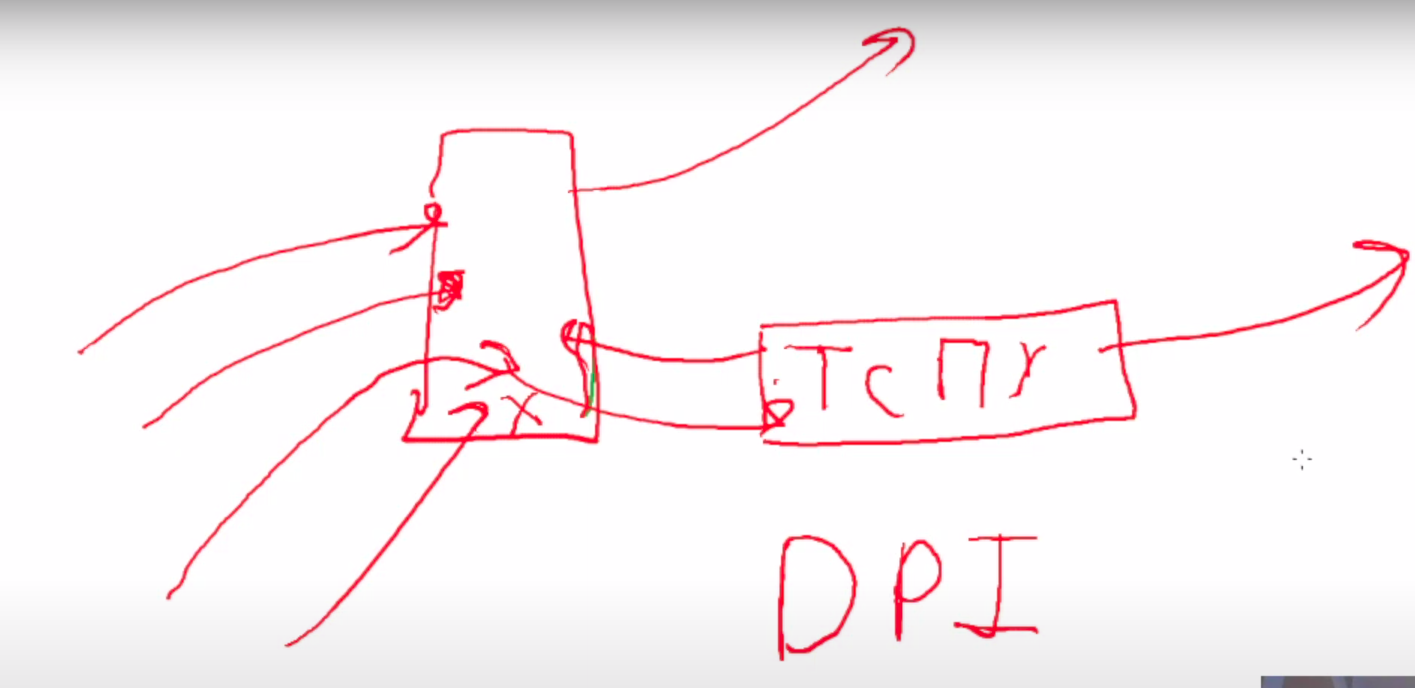 х
ТСПУ
DPI